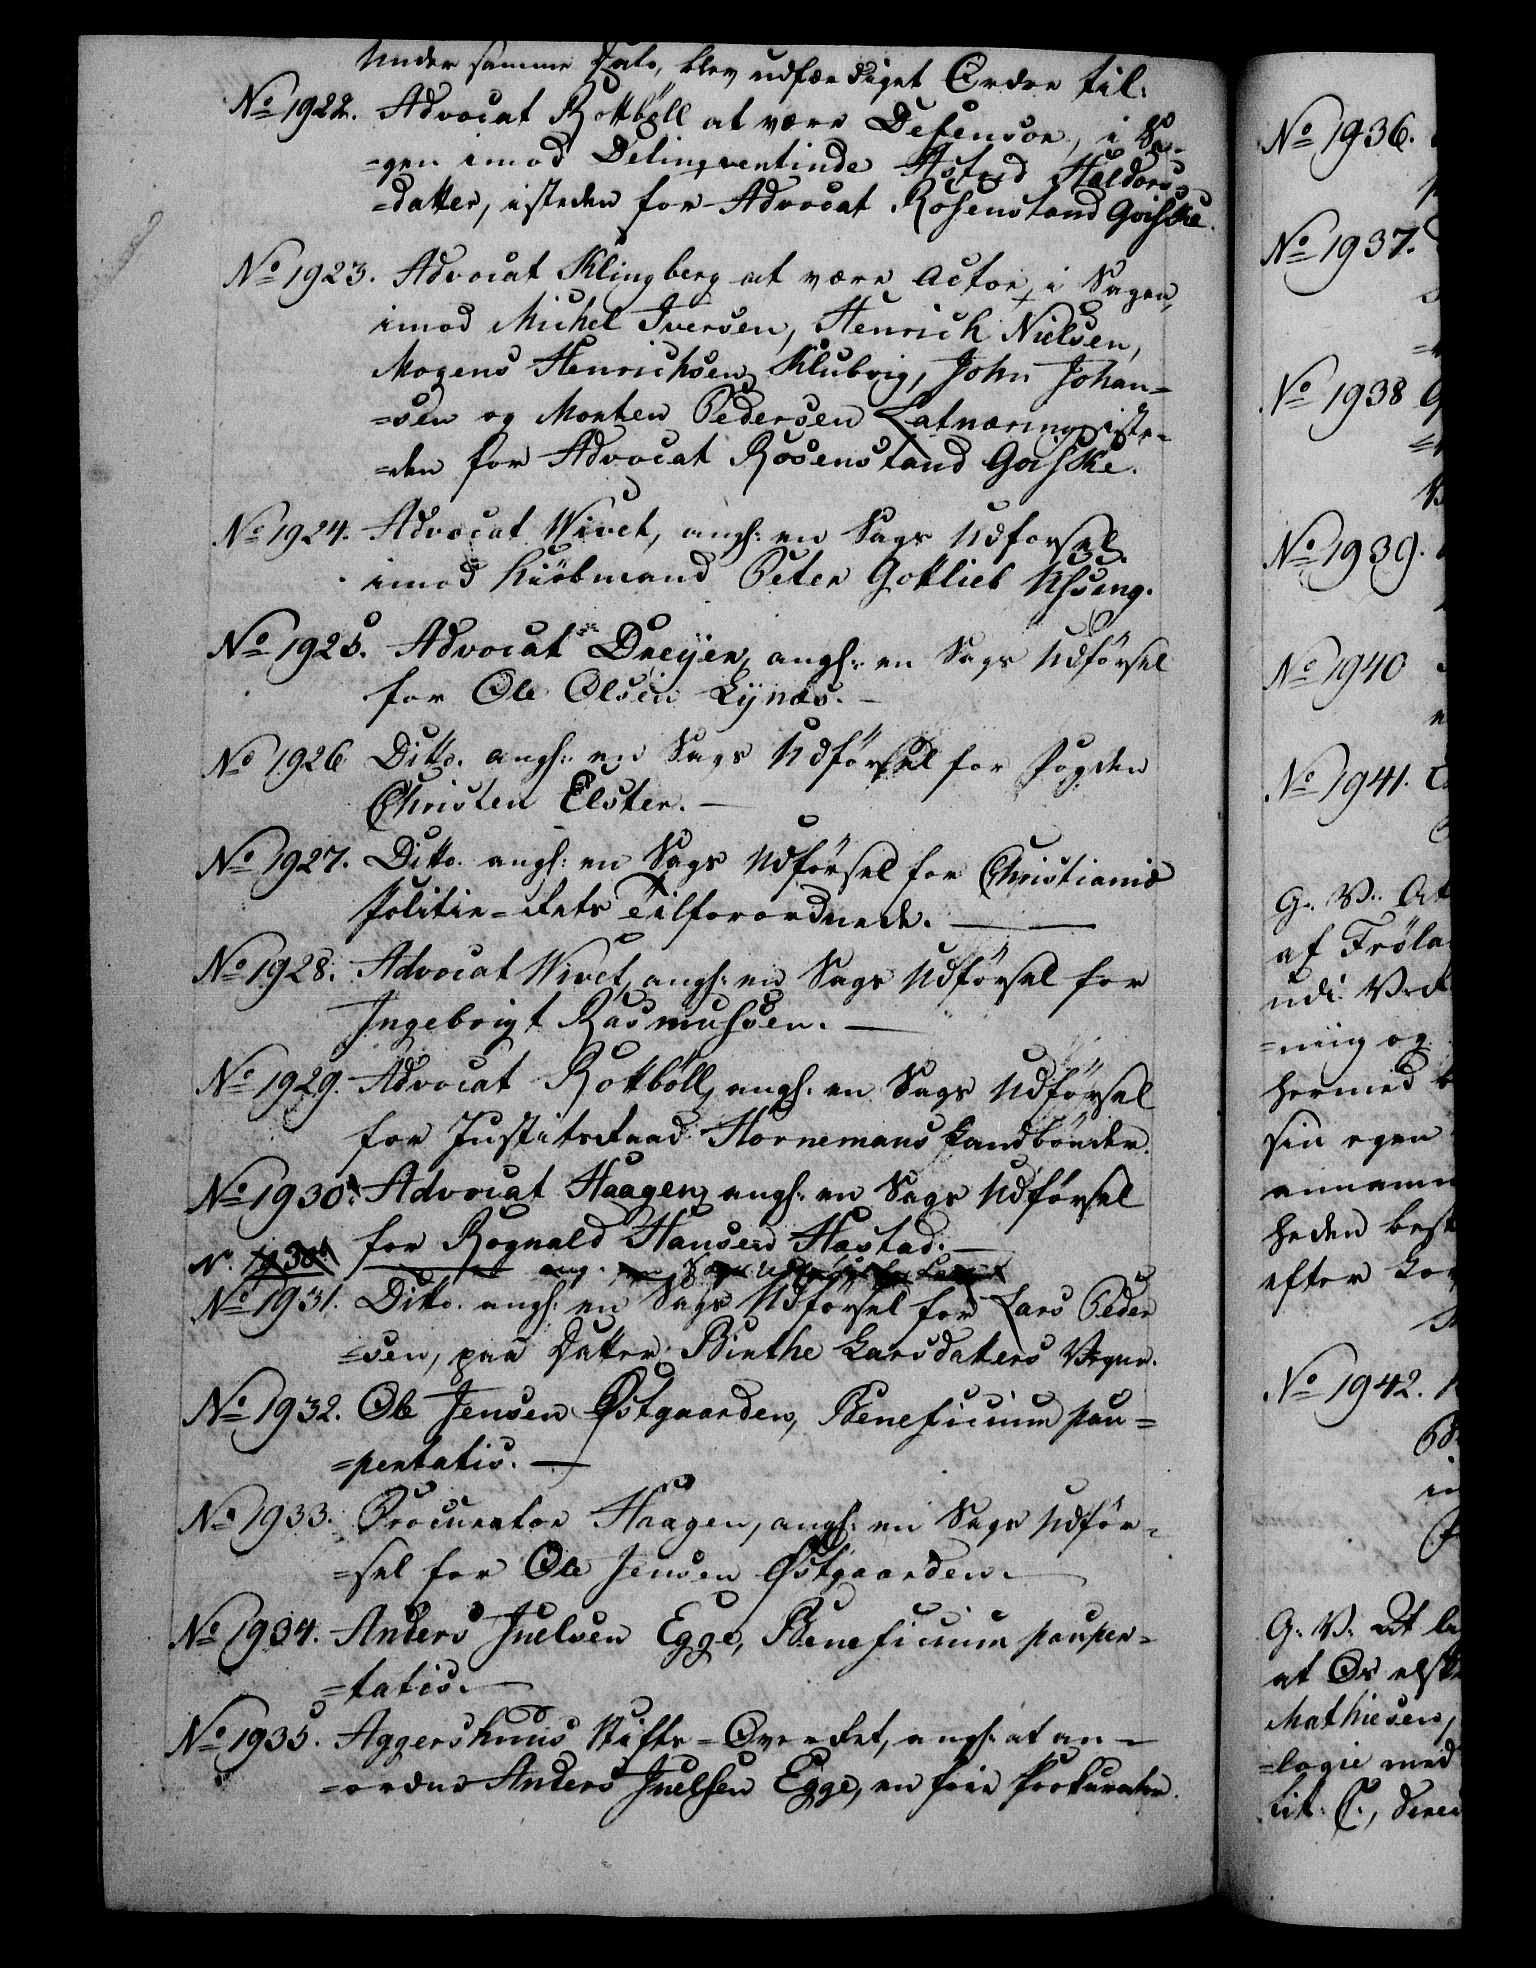 Under samme Dato, blev udfærdiget Ordre til:
No 1922. Advocat Rottböll at være Defensor, i Sa-
=gen imod Delinqventinde Astrid Haldors-
=datter, isteden for Advocat Rosenstand Goiske.
No 1923. Advocat Klingberg at være Actor, i Sagen,
imod Michel Iversen, Henrich Nielsen,
Mogens Henrichsen Klubvig, John Johan-
=sen og Morten Pedersen Latnæring, iste-
=den for Advocat Rosenstand Goiske.
No 1924. Advocat Wivet, angl: en Sags Udførsel
imod Kiöbmand Peter Gottlieb
No 1925. Advocat Dreÿer, angl: en Sags Udförsel
for Ole Olsen Lÿnæs. —
No 1926. Ditto. angl: en Sags Udförsel for Fogden
Christen Elster. —
No 1927. Ditto. angl: en Sags Udförsel for Christiania
Politie=Rets Tilforordnede. —
No 1928. Advocat Wivet, angl: en Sags Udförsel for
Ingebrigt Rasmussen. —
No 1929. Advocat Rottböll, angl: en Sags Udförsel
for Justitsraad Hornemans Landbönder.
No 1930. Advocat Haagen, angl: en Sags Udförsel
for Rognald Hansen Hastad. —
No 1931. Ditto. angl: en Sags Udförsel for Lars Peder
=sen, paa Datter Birthe Larsdatters Vegne.
No 1932. Ole Jensen Østgaarden, Beneficium pau-
=pertatis. —
No 1933. Procurator Haagen, angl: en Sags Udför-
=sel for Ole Jensen Østgaarden. —
No 1934. Anders Juelsen Egge, Beneficium pauper-
=tatis. —
No 1935. Aggershuus Stifts=Overret, angl: at an-
=ordne Anders Juelsen Egge, en frie Prokurator.
No 1936.
No 1937.
No 1938
No 1939.
No 1940
No 1941.
G. V. At
af Fröla
udi
=ning og
hermed
sin egen
annamm
heden best
efter
No 1942.
G. V. At
at Os elsk
Mathiesen,
=logie med
Lit: C,